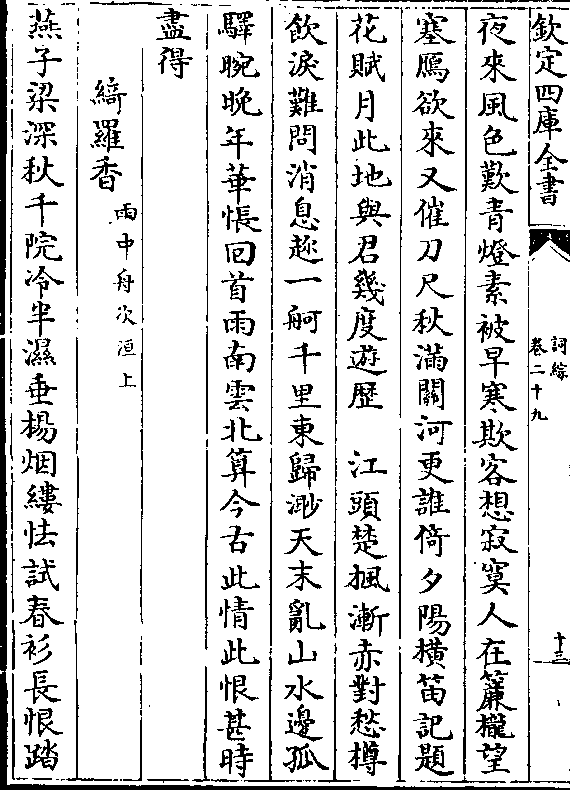 欽定四庫全書
詞綜
卷二十九
十三
夜來風色歎青燈素被早寒欺客想寂寞人在簾櫳望
塞鴈欲來又催刀尺秋滿關河更誰倚夕陽橫笛記題
花賦月此地與君幾度遊歷　江頭楚楓漸赤對愁樽
飲淚難問消息趂一舸千里東歸渺天末亂山水邊孤
驛晼晚年華悵回首雨南雲北算今古此情此恨甚時
盡得
綺羅香雨中舟次洹上
燕子梁深秋千院冷半濕垂楊烟縷怯試春衫長恨踏